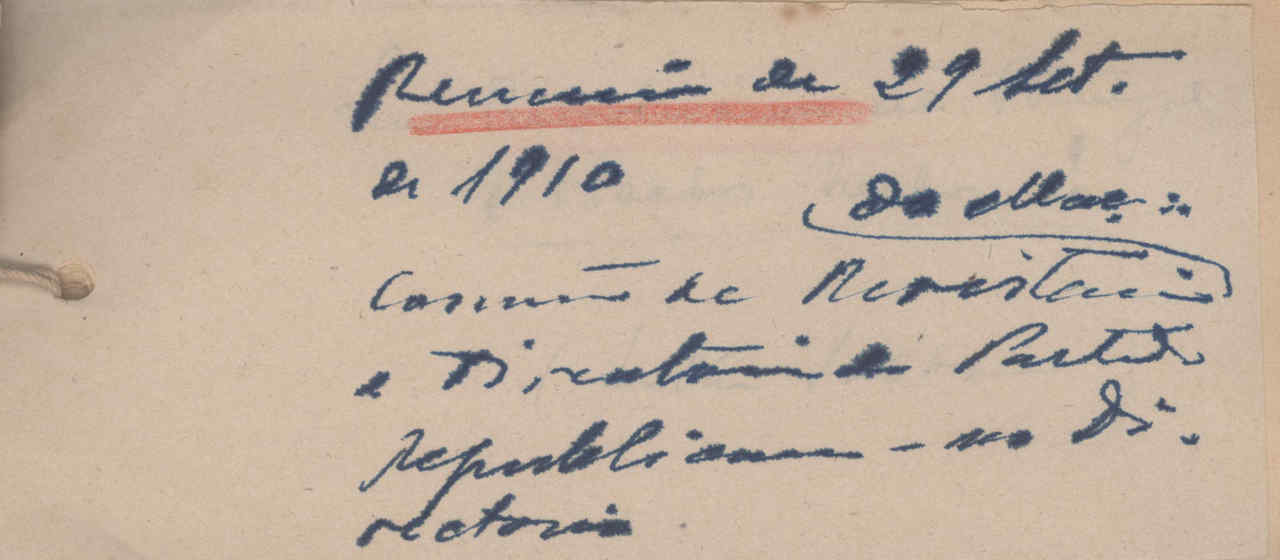 Reunião de 29 Set.
de 1910
da Maç∴
Comissão de Resistencia
e Directorio do Partido
republicano – no Di-
rectorio